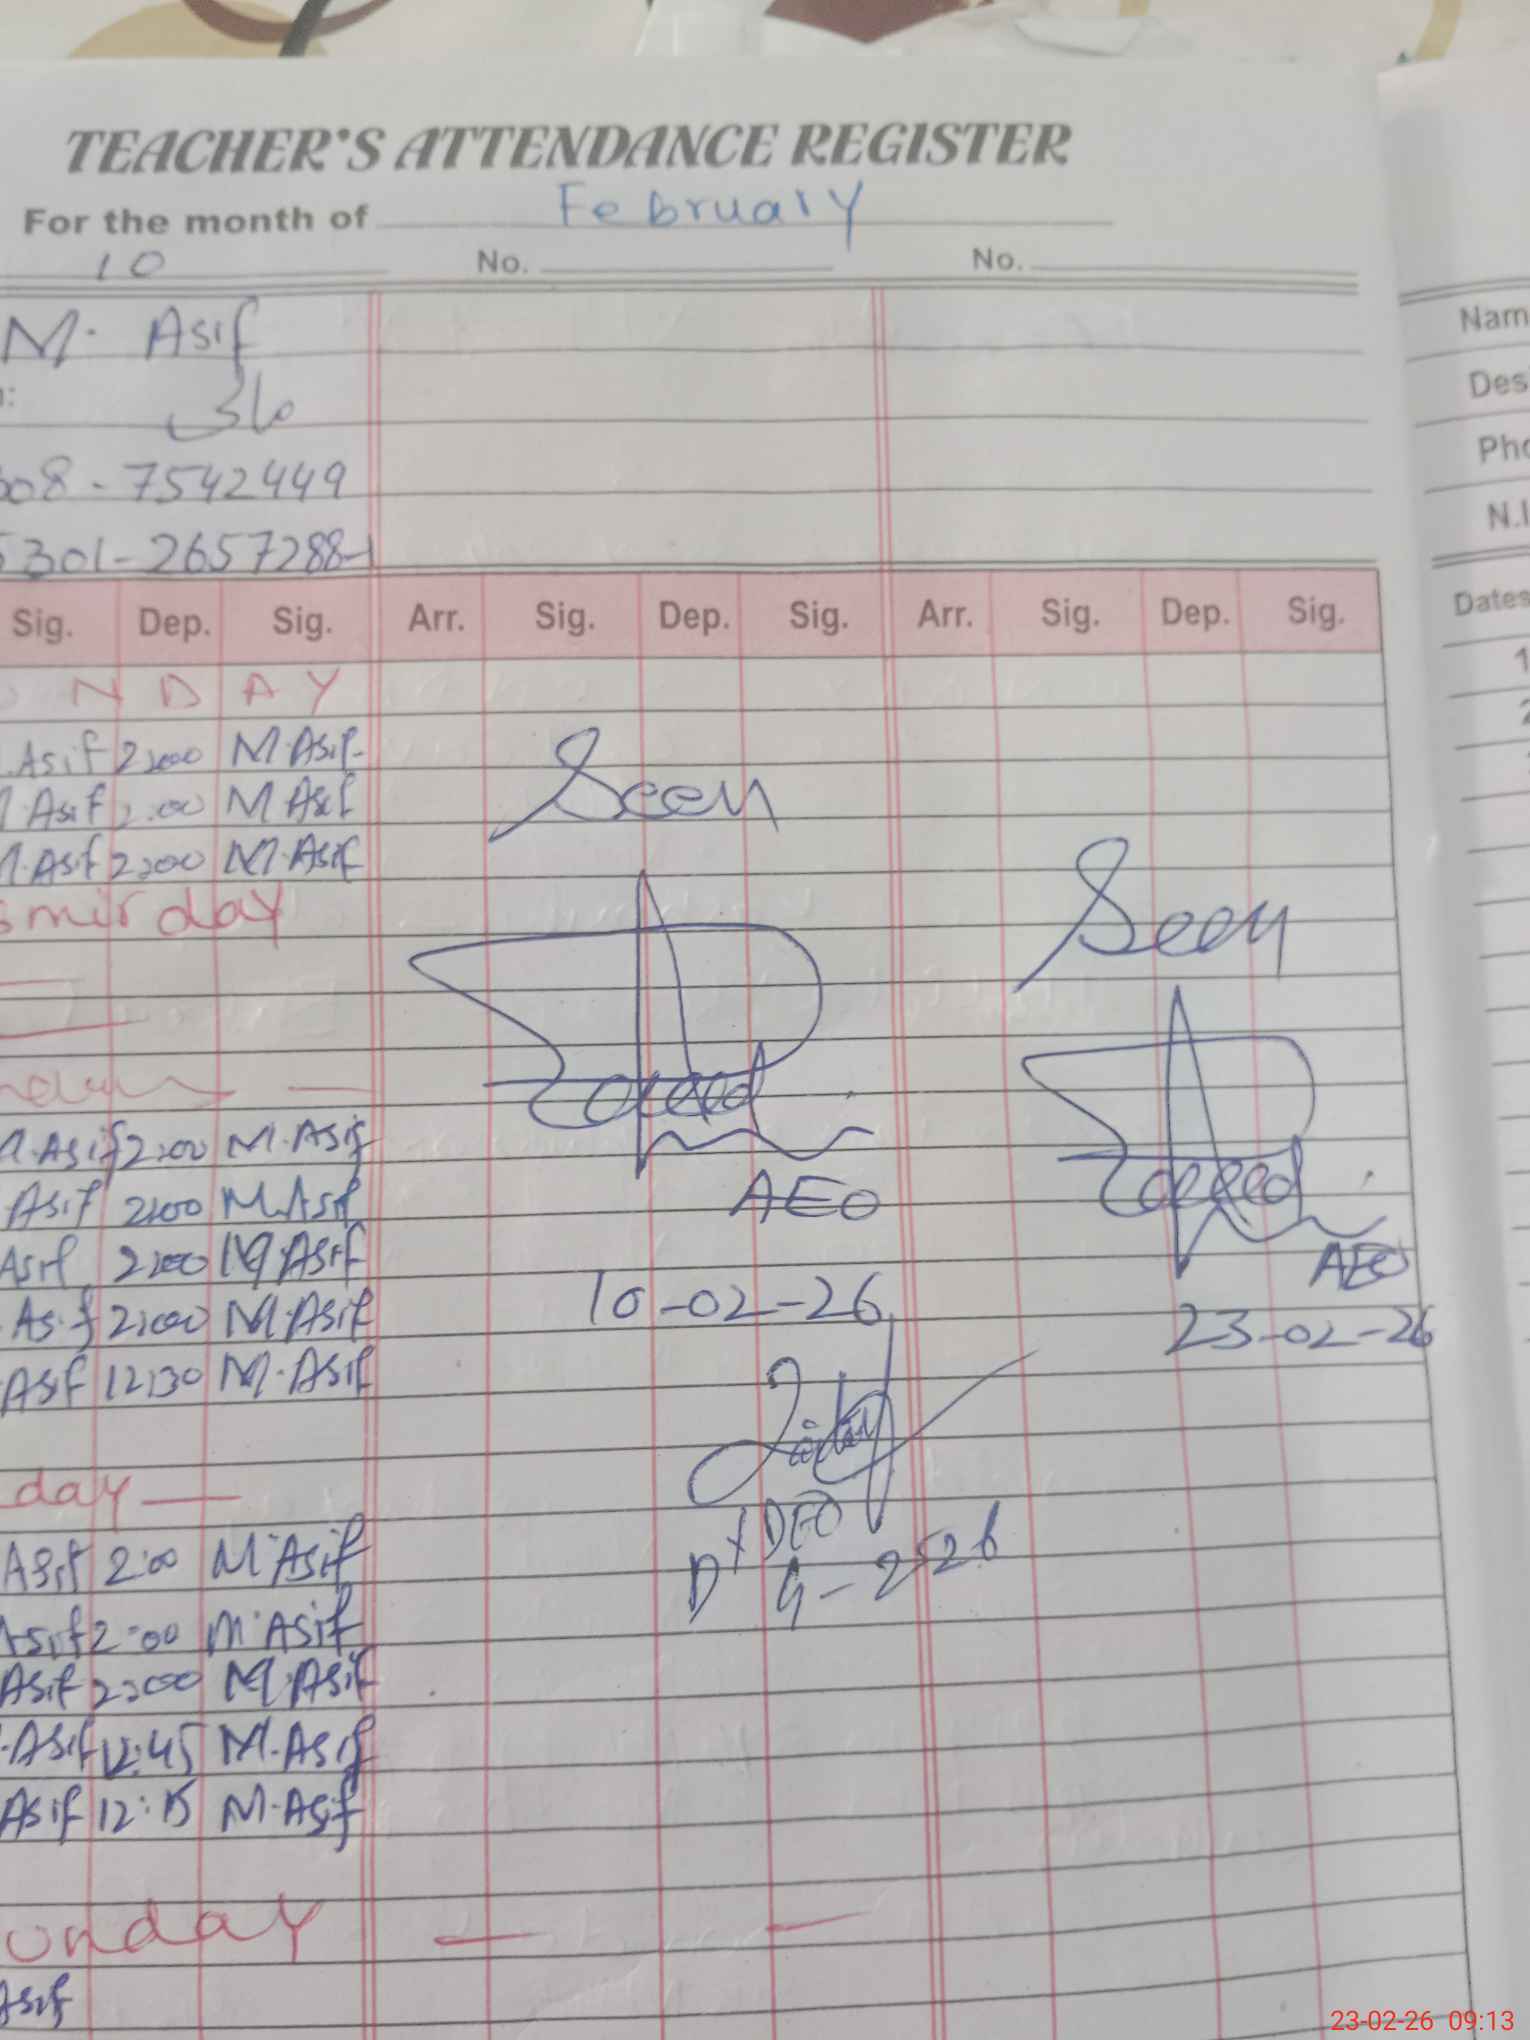 TEACHER'S ATTENDANCE REGISTER
For the month of February
10 No. No.
M. Asif
مالی
08-7542449
5301-2657288-1
Sig. Dep. Sig. Arr. Sig. Dep. Sig. Arr. Sig. Dep. Sig.
N D A Y
Asif 2:00 M.Asif
Asif 2:00 M Asif
M.Asif 2:00 M.Asif
Seen
smir day
Seen
M.Asif 2:00 M.Asif
Asif 2:00 M.Asif
AEO
Asif 2:00 M.Asif
AEO
Asif 2:00 M.Asif
10-02-26
23-02-26
Asif 12:30 M.Asif
day
DEO
Asif 2:00 M.Asif
Asif 2:00 M.Asif
Asif 2:00 M.Asif
Asif 12:45 M.Asif
Asif 12:15 M.Asif
unday
Asif
Nam
Des
Pho
N.I
Dates
1
2
23-02-26 09:13